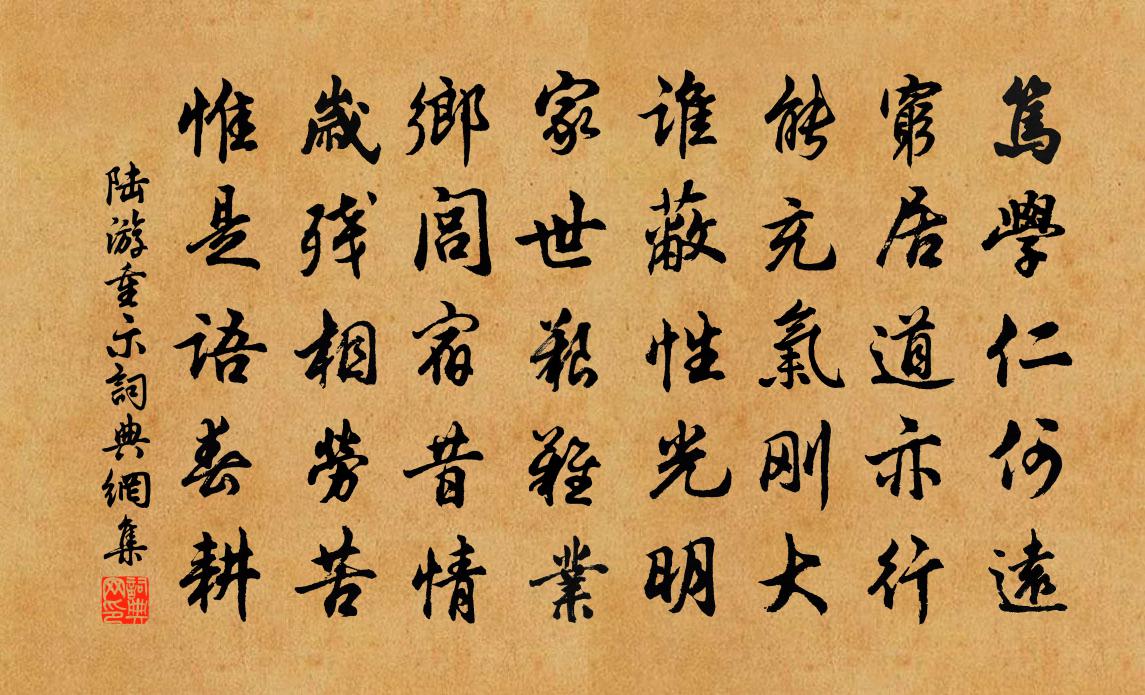 篤學仁何遠
窮居道亦行
能充氣剛大
誰蔽性光明
家世艱難業
鄉閭宿昔情
歲殘相勞苦
惟是語春耕
陸游重示詞典網集
詞典网印